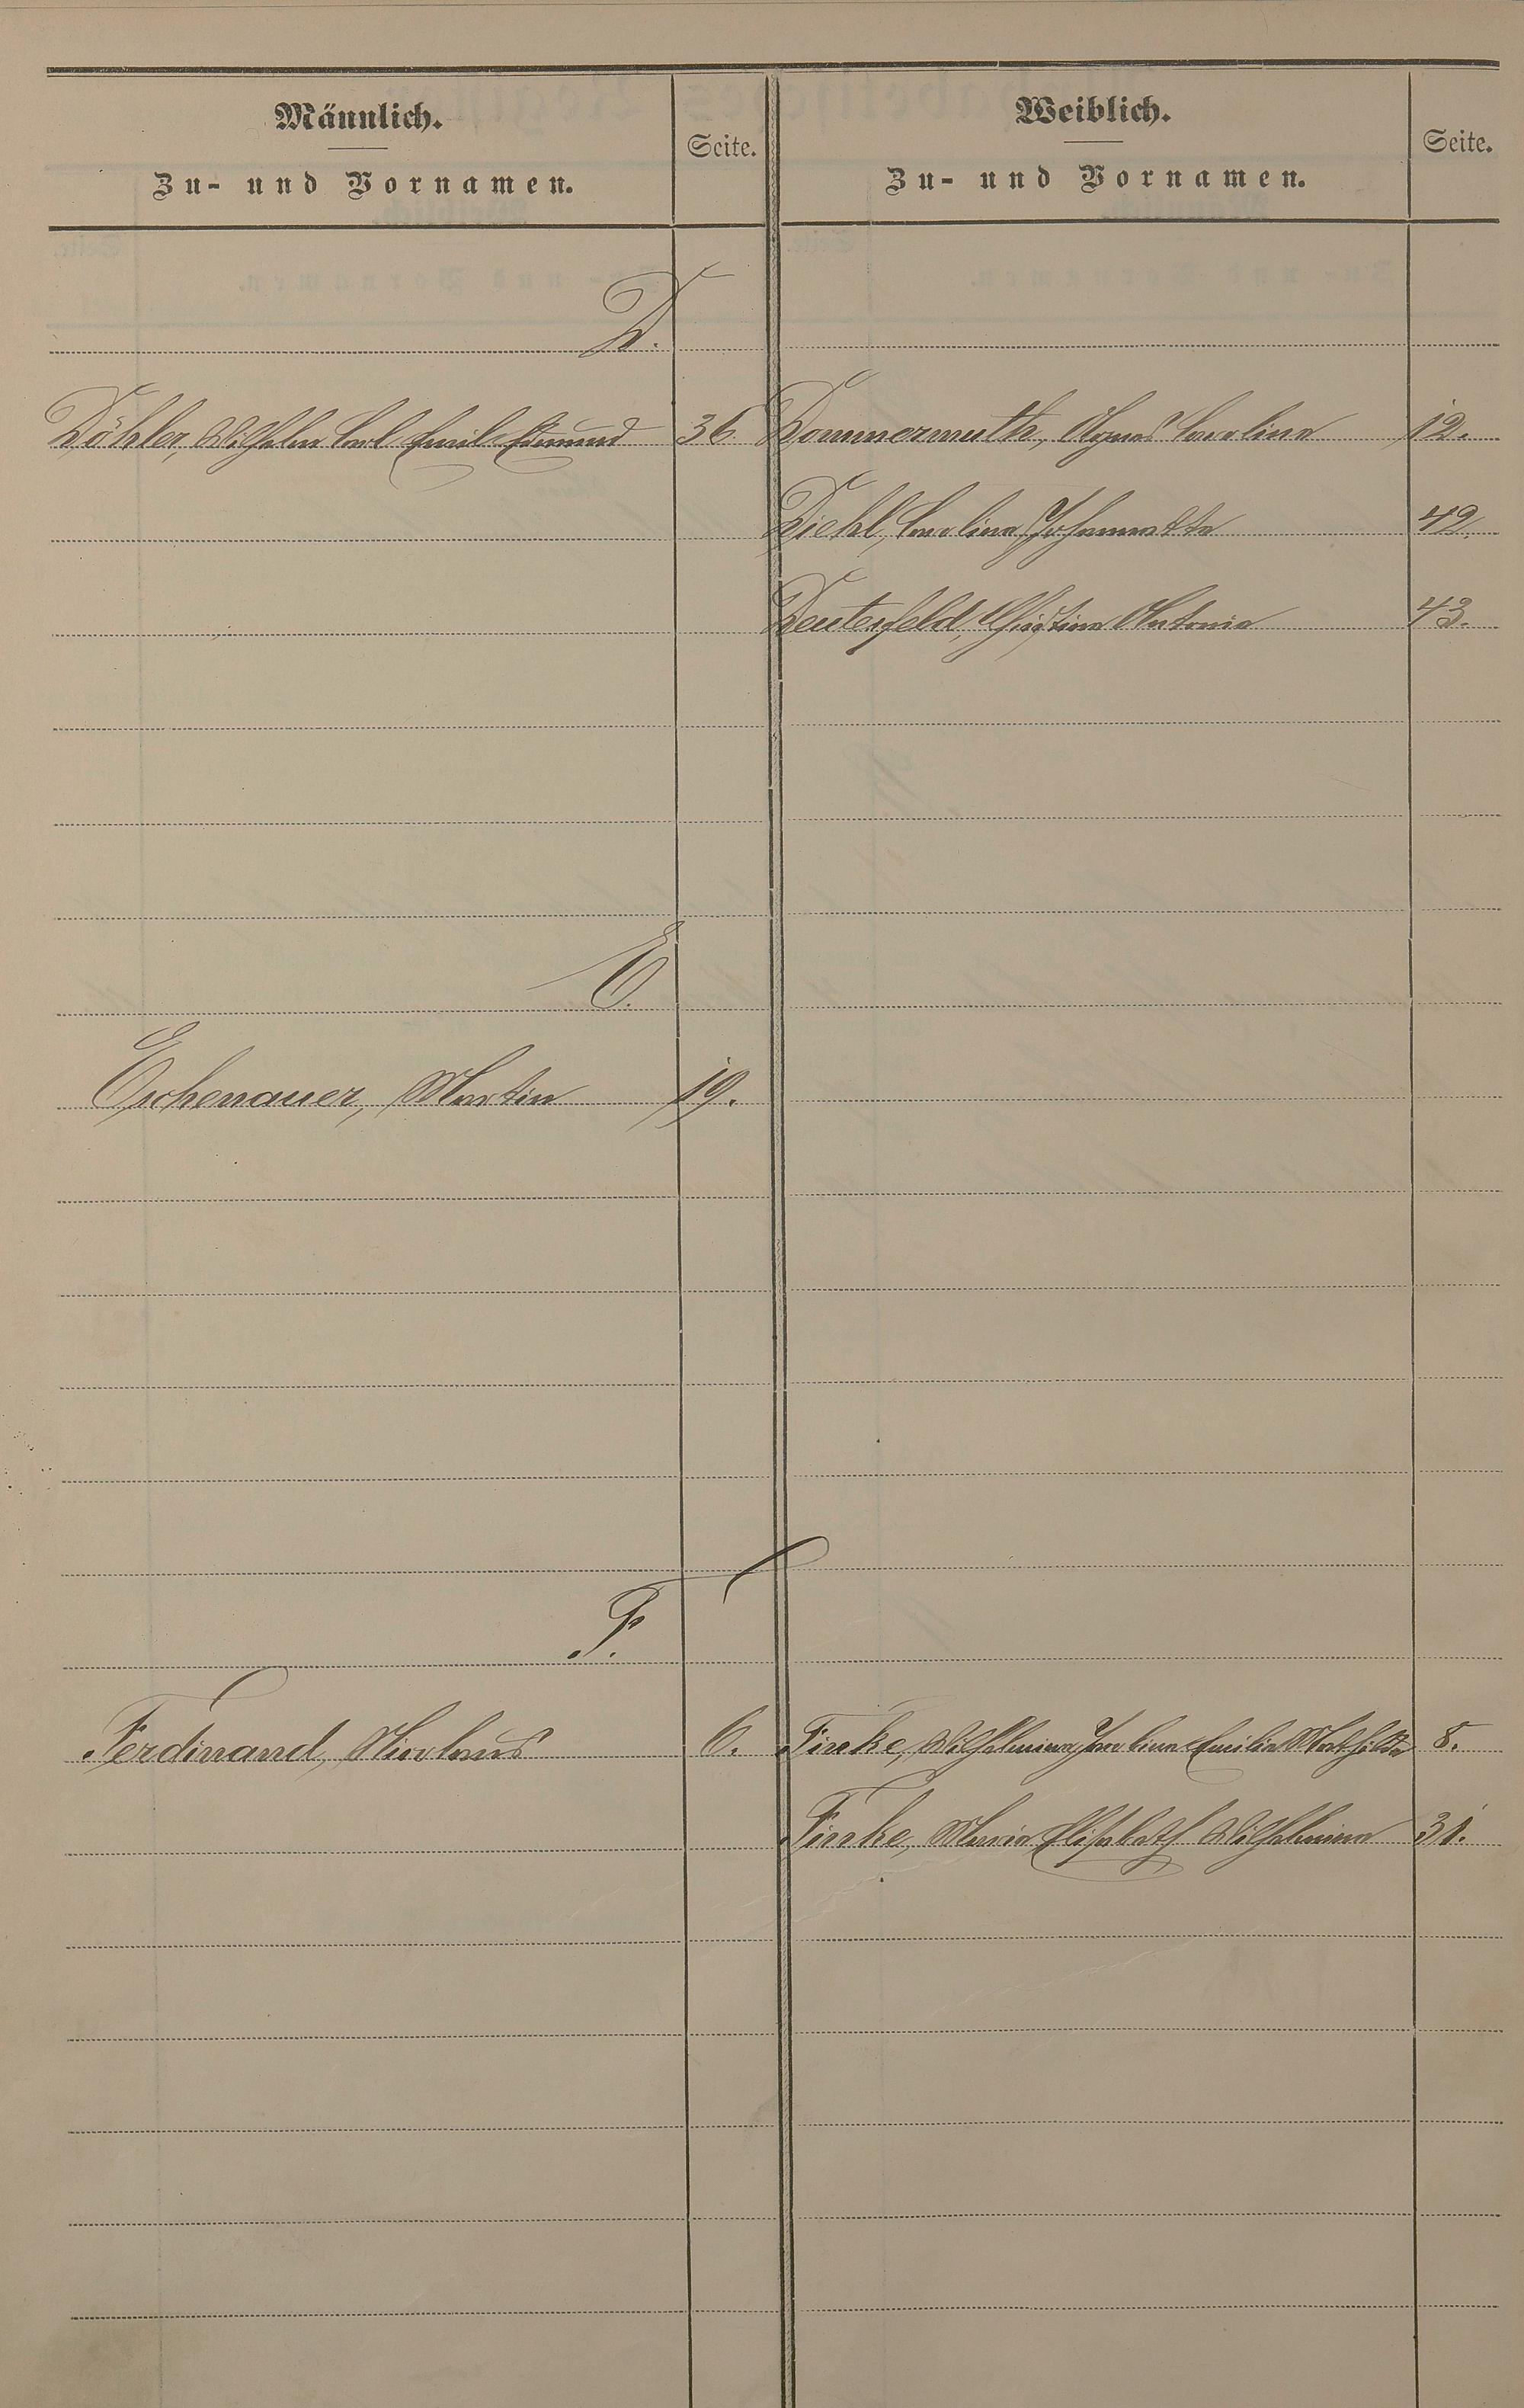 Männlich.
Zu- und Vornamen.
Seite.
Weiblich.
Zu- und Vornamen.
Seite.
D.
Döhler, Wilhelm Carl Emil Edmund 36 Dommermuth, Agnes Carolina 12.
Diehl, Carolina Johannette 42.
Deuterfeld, Christina Antonia 43.
E.
Eschenauer, Martin 19.
F.
Ferdinand, Nicolaus 6. Finke, Wilhelmina Emilie Mathilde 8.
Finke, Maria Elisabeth Wilhelmina 31.